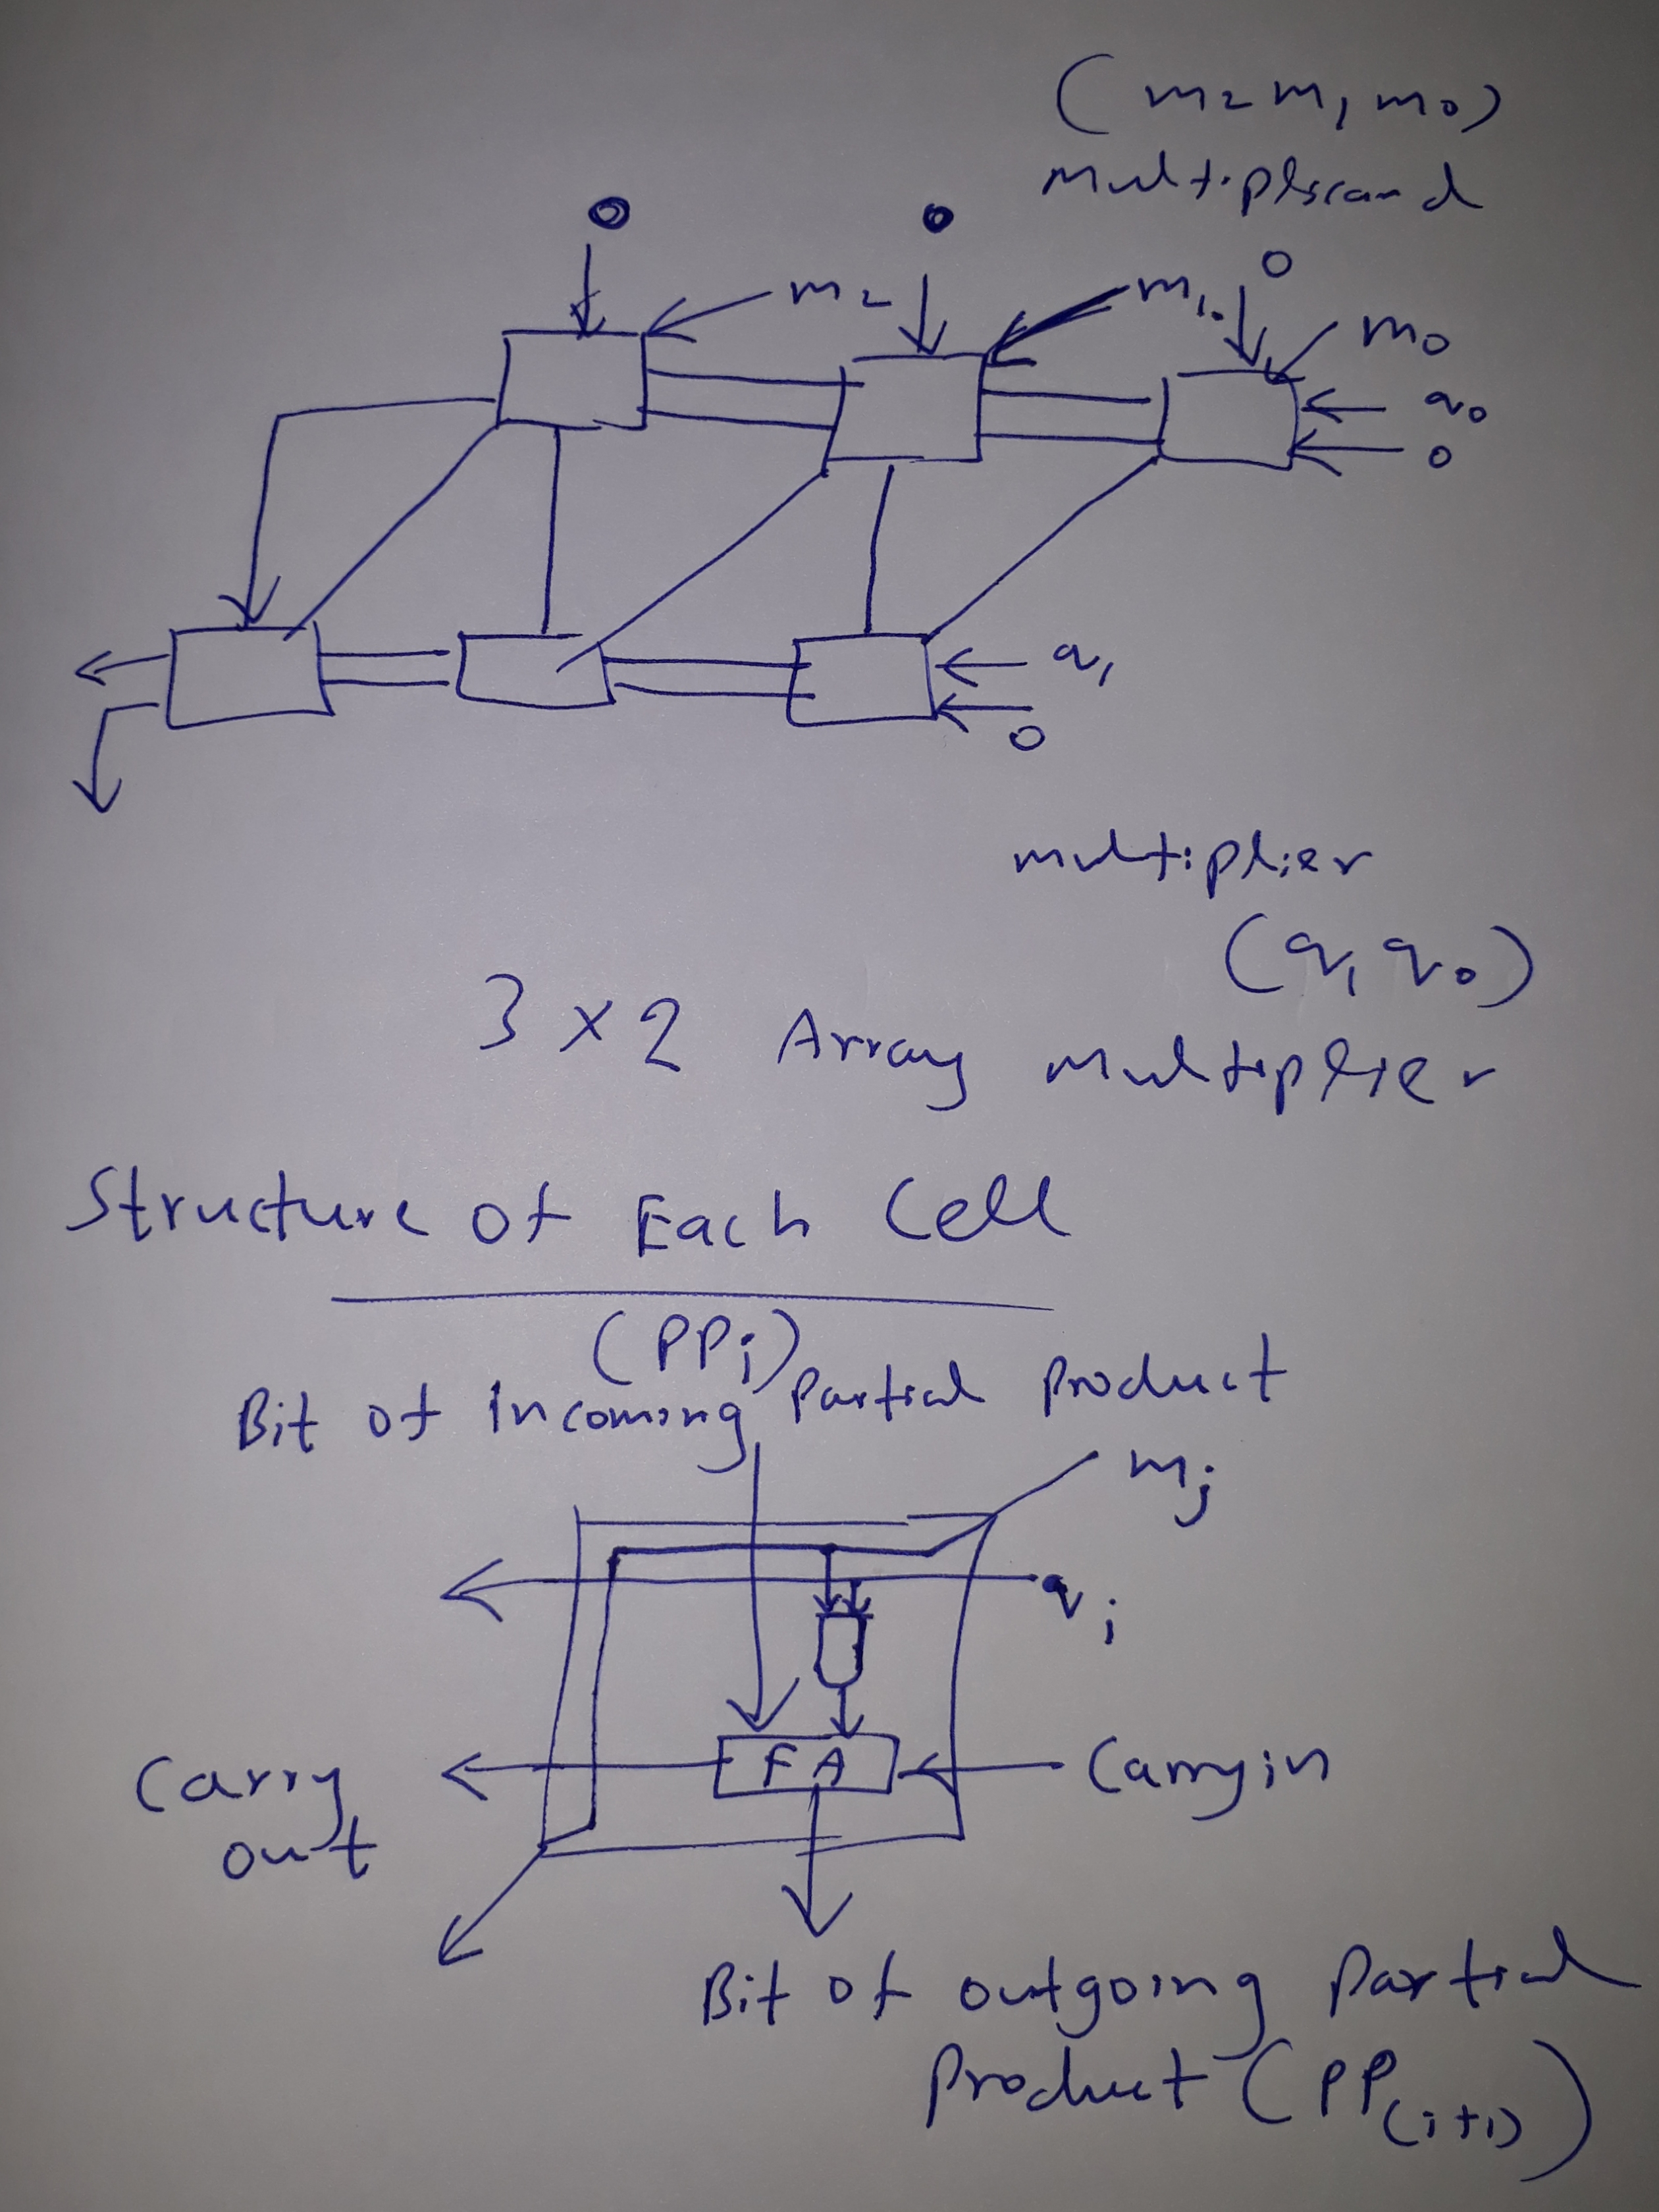 (m2 m1 m0)
Multiplicand
0 0 0
m2 m1 m0
q0
0
q1
0
multiplier
(q1 q0)
3 x 2 Array Multiplier
Structure of Each Cell
(PPi)
Bit of Incoming Partial Product
mj
qi
FA
Carry out
Carryin
Bit of outgoing Partial
Product (PP(i+1))